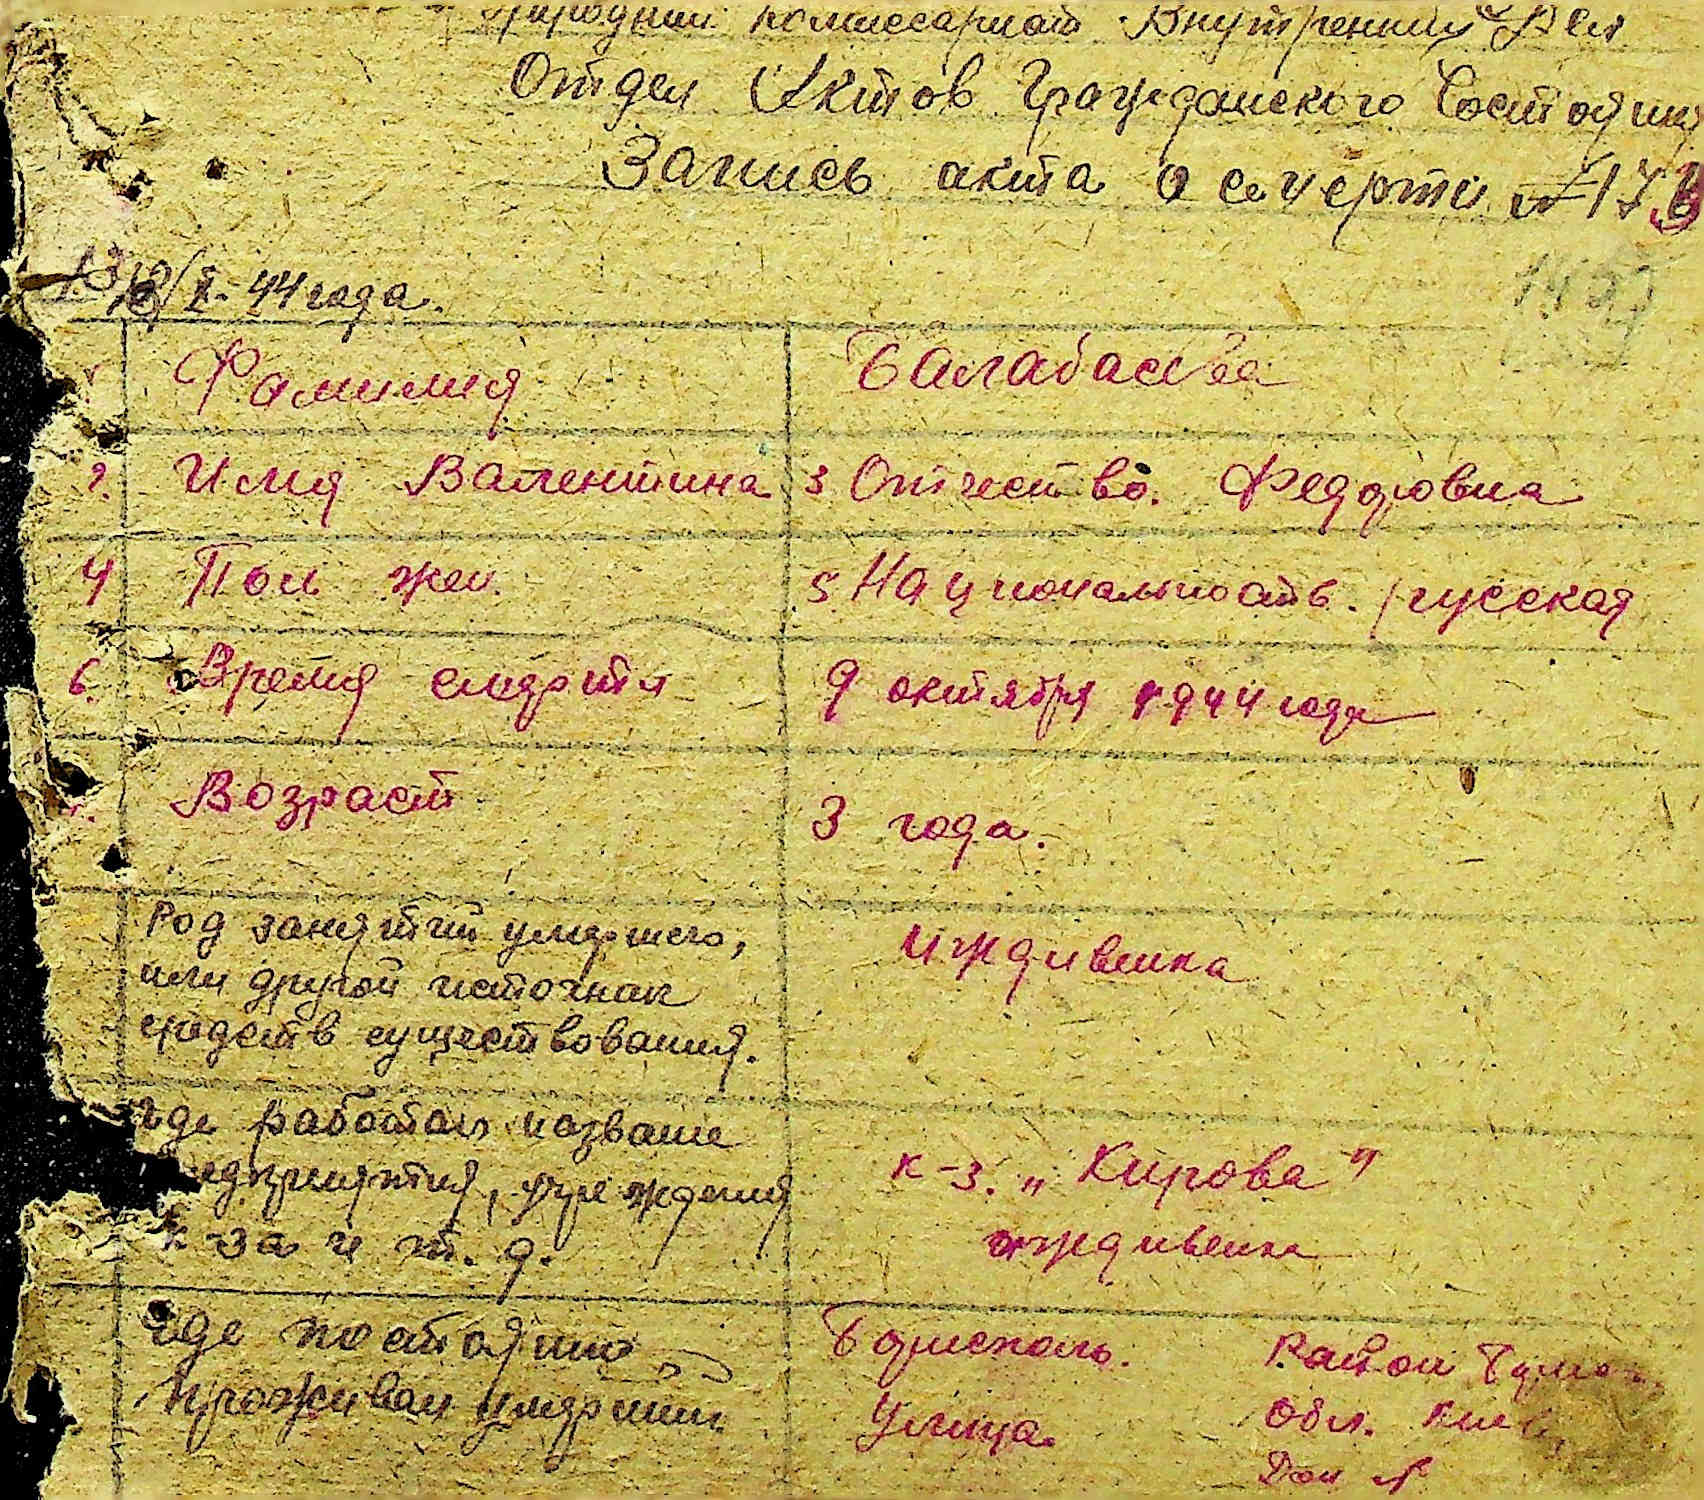 Народний Комиссариат Внутренних Дел
Отдел Актов Гражданского Состояния
Запись акта о смерти № 173
13/X-44 года.
Фамилия Балабасева
2. Имя Валентина 3 Отчество. Федоровна
4 Пол жен. 5. Национальность. русская
6. Время смерти 9 октября 1944 года
Возраст 3 года.
Род занятий умершего, иждивенка
или другой источник
средств существования.
где работал название
предприятия, учреждения к-з. „Кирова"
к-за и т. д. иждивенка
где постоянно Борисполь. Район
проживал умерший Улица. Обл.
Дом №